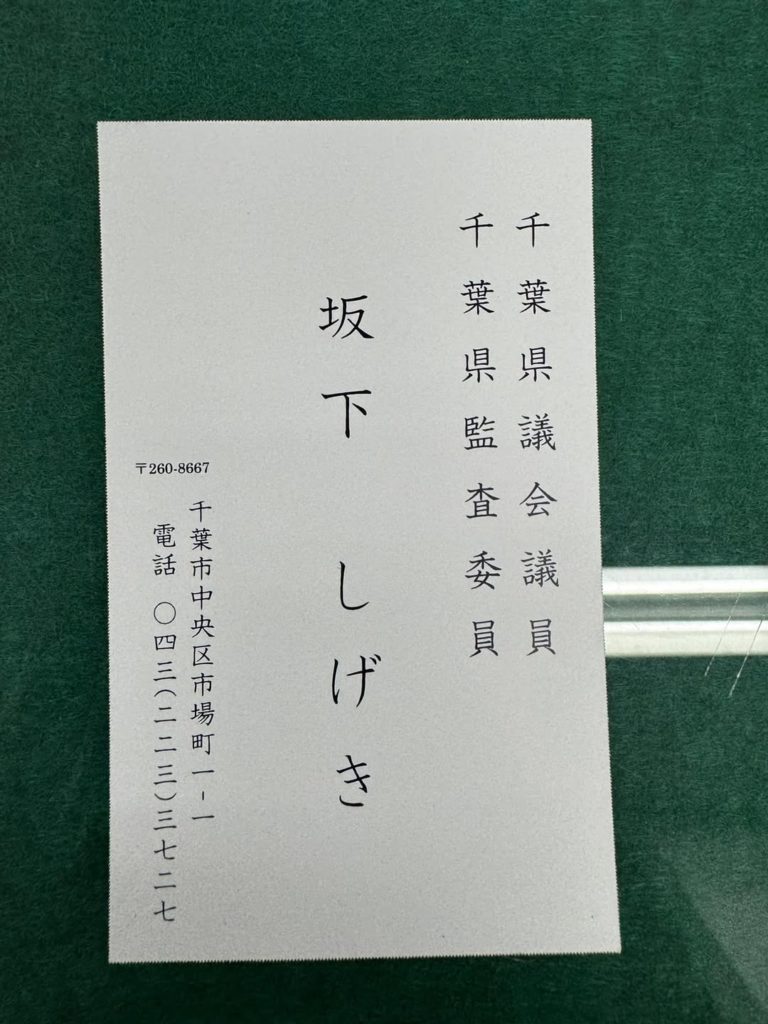 千葉県議会議員
千葉県監査委員
坂下 しげき
〒260-8667
千葉市中央区市場町一-一
電話 〇四三(二二三)三七二七